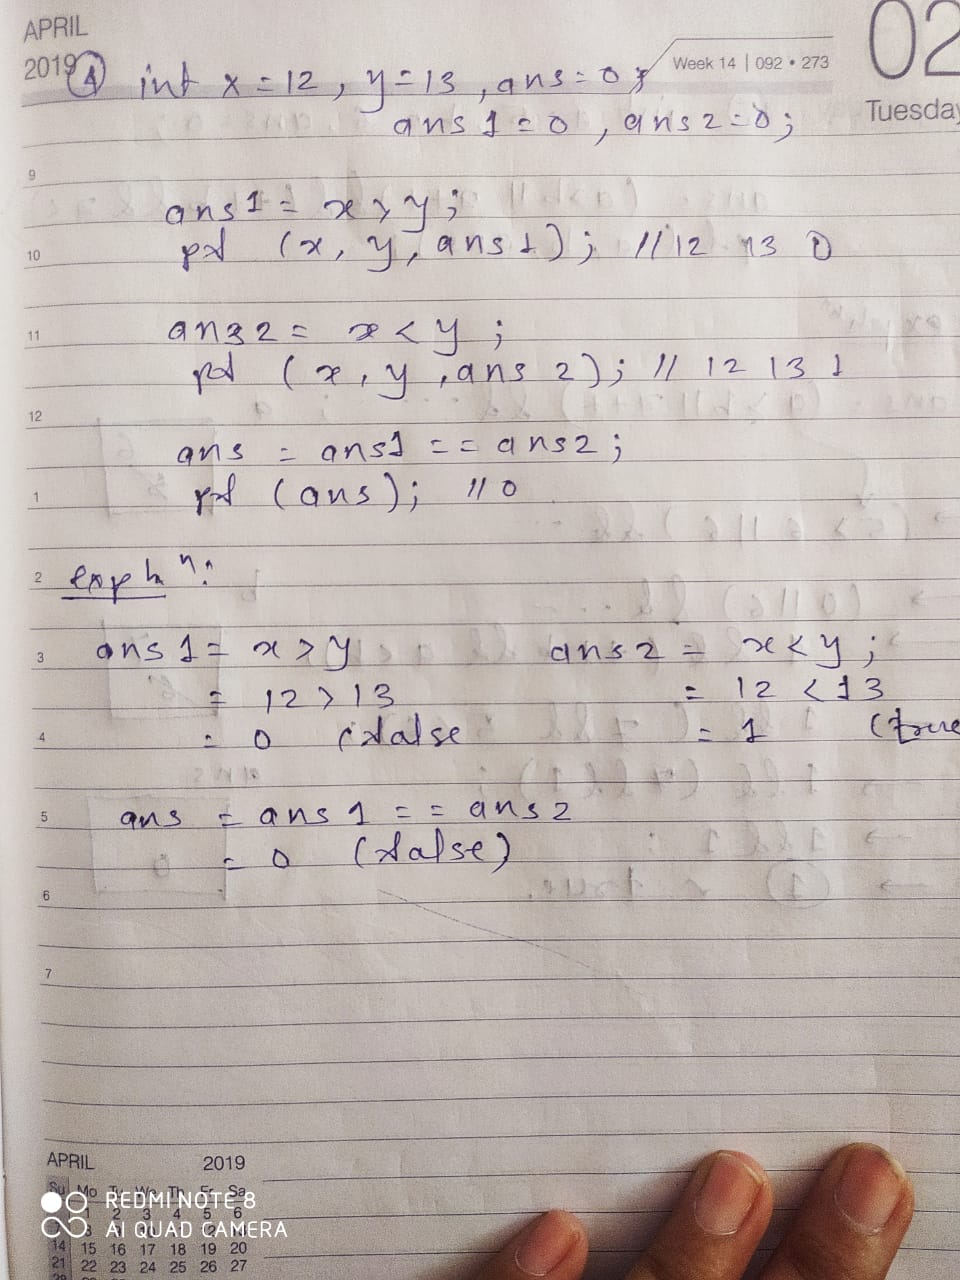 APRIL
2019
Week 14 | 092 • 273
02
Tuesday
④ int x = 12, y = 13, ans = 0;
ans1 = 0, ans2 = 0;
9
ans1 = x > y;
10 pf (x, y, ans1); // 12 13 0
11 ans2 = x < y;
pf (x, y, ans2); // 12 13 1
12
ans = ans1 == ans2;
1 pf (ans); // 0
2 expln:
3 ans1 = x > y ans2 = x < y;
= 12 > 13 = 12 < 13
4 = 0 (false = 1 (true
5 ans = ans1 == ans2
= 0 (false)
6
7
APRIL 2019
Su Mo Tu We Th Fr Sa
1 2 3 4 5 6
14 15 16 17 18 19 20
21 22 23 24 25 26 27
REDMI NOTE 8
AI QUAD CAMERA